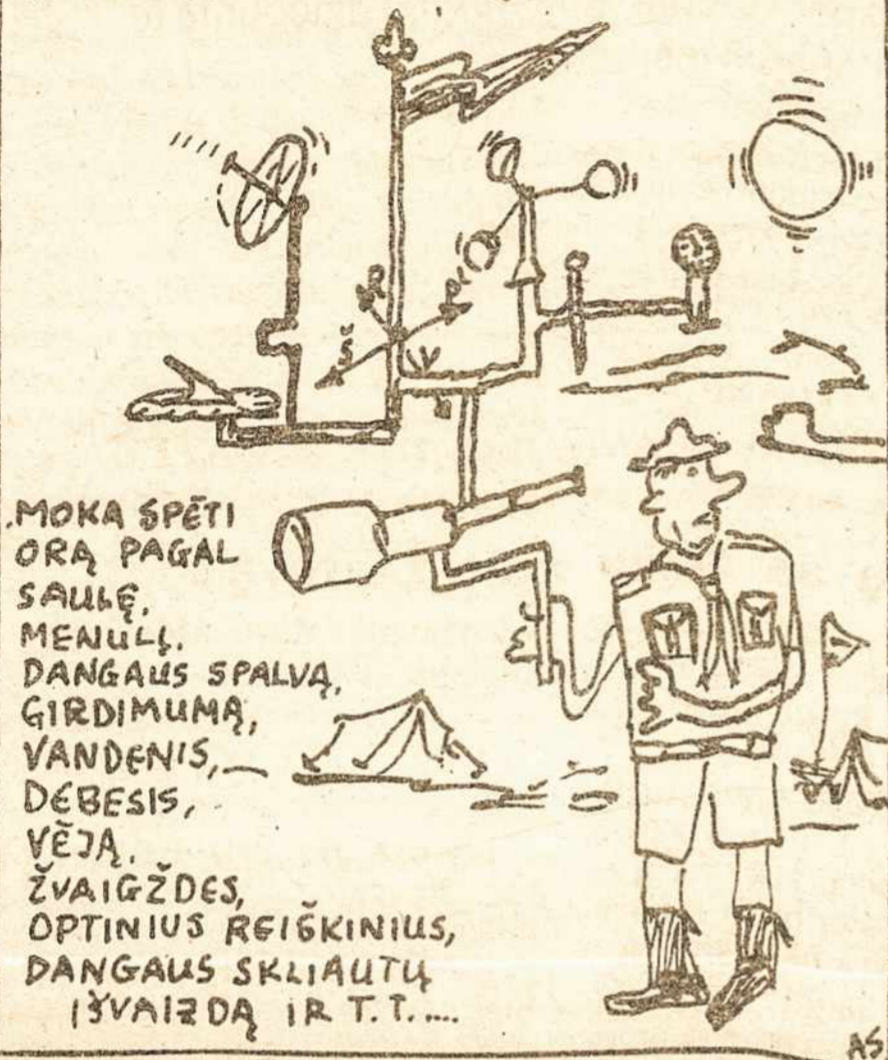 Š
R
P
V
.MOKA SPĖTI
ORĄ PAGAL
SAULĘ,
MENULĮ,
DANGAUS SPALVĄ,
GIRDIMUMĄ,
VANDENIS,
DEBESIS,
VĖJĄ,
ŽVAIGŽDES,
OPTINIUS REIŠKINIUS,
DANGAUS SKLIAUTŲ
IŠVAIZDĄ IR T.T....
AS